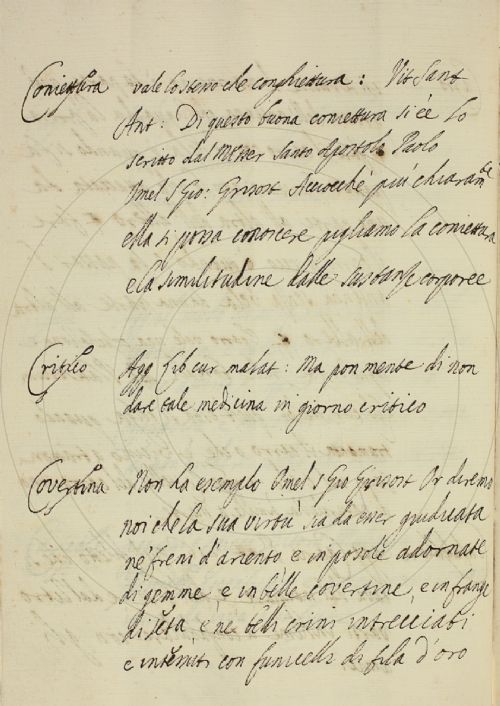 Coniettura vale lo stesso che conghiettura: Vit Sant
Ant: Di questo buona coniettura si è lo
scritto dal Messer Santo Apostolo Paolo
Omel S Gio: Grisost Acciocchè più chiaramte
ella si possa conoscere pigliamo la coniettura
e la similitudine dalle sustanze corporee
Critico Agg Lib cur malat: Ma pon mente di non
dare tale medicina in giorno critico
Covertina Non da esempio Omel S Gio Grisost Or diremo
noi che la sua virtù sia da esser giudicata
ne' freni d'ariento, e in posole adornate
di gemme, e in belle covertine, e in frange
di seta, e ne belli crini intrecciati
e con funicelle di fila d'oro